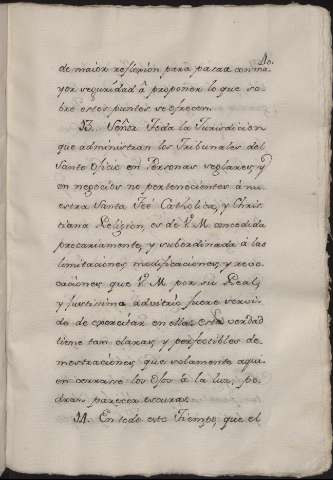 40.
de maior reflexion para pasar con ma
yor seguridad â proponer lo que so
bre estos puntos se ofrecen.
33. Señor Toda la Jurisdiccion
que administran los Tribunales del
Santo Oficio en Personas seglares, y
en negocios no pertenecientes â nu
estra Santa Feê Catholica, y Chris
tiana Religion, es de V. M. concedida
precariamente, y subordinada â las
limitaciones modificaciones, y revo
caciones que V. M. por su Real,
y Justissima advitrio fuere servi
do de exercitar en ellas esta verdad
tiene tan claras, y perfectibles de
mostraciones que solamente aqui
en cerrare los ojos â la luz, po
dran parecer escuras.
34. En todo este Tiempo, que el